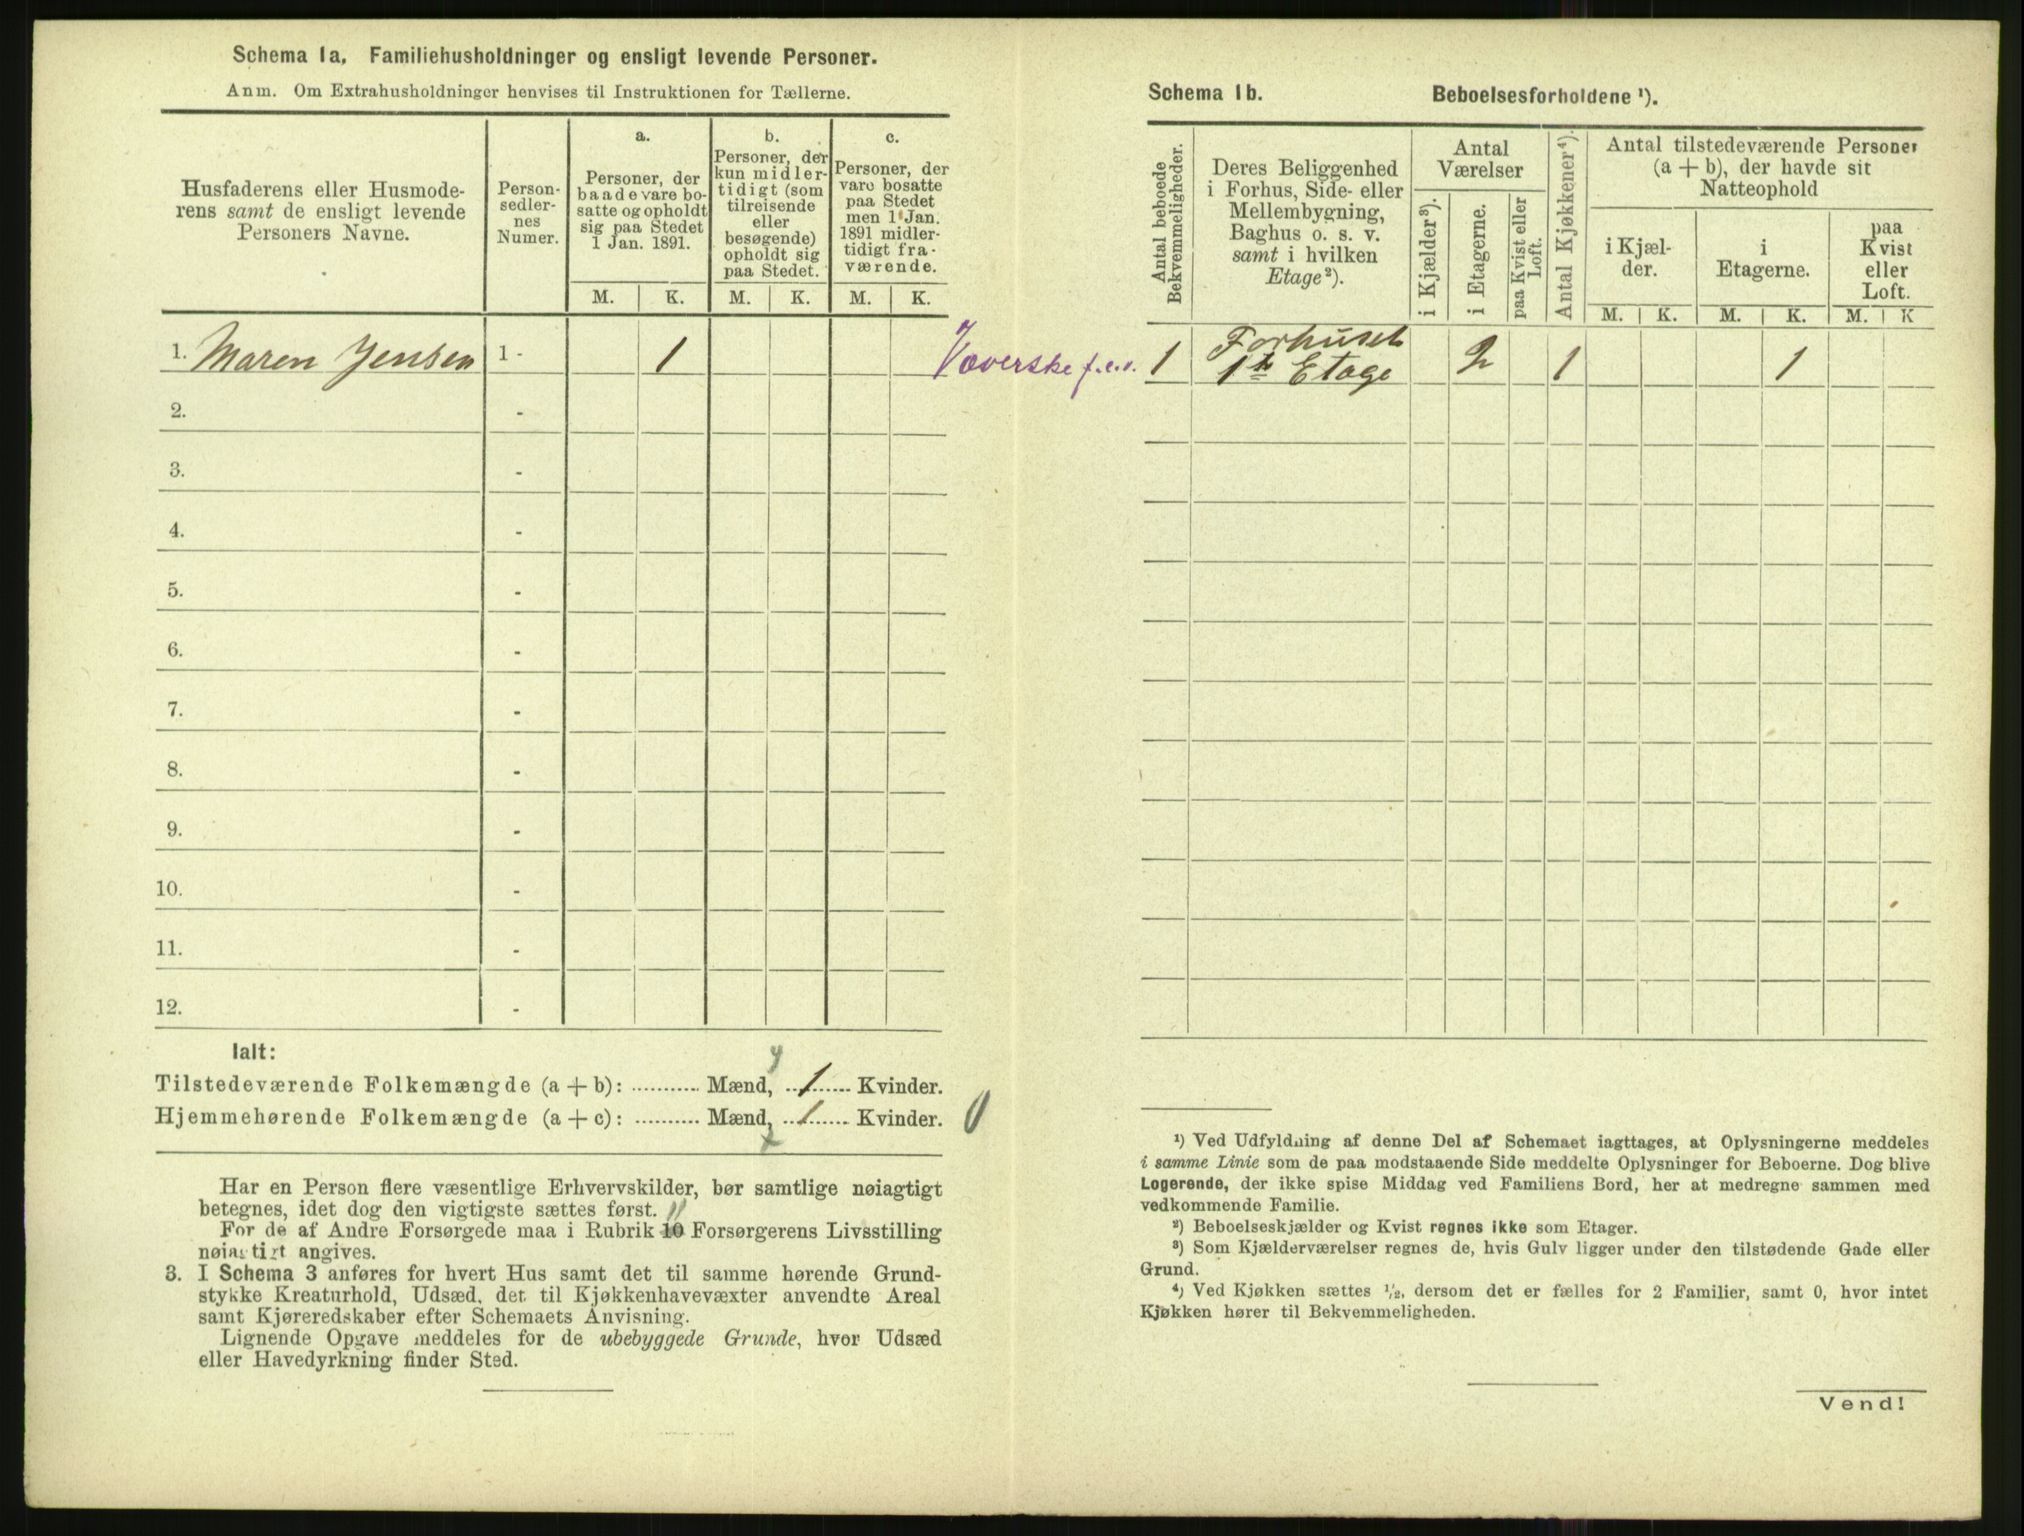 Schema 1a. Familiehusholdninger og ensligt levende Personer.
Anm. Om Extrahusholdninger henvises til Instruktionen for Tællerne.
Husfaderens eller Husmode-
rens samt de ensligt levende
Personers Navne.
Person-
sedler-
nes
Numer.
a.
Personer, der
baade vare bo-
satte og opholdt
sig paa Stedet
1 Jan. 1891.
M. K.
b.
Personer, der
kun midler-
tidigt (som
tilreisende
eller
besøgende)
opholdt sig
paa Stedet.
M. K.
c.
Personer, der
vare bosatte
paa Stedet
men 1 Jan.
1891 midler-
tidigt fra-
værende.
M. K.
1. Maren Jensen 1 - 1 Væverske f.e.v.
2. -
3. -
4. -
5. -
6. -
7. -
8. -
9. -
10. -
11. -
12. -
Ialt:
Tilstedeværende Folkemængde (a + b): .......... Mænd, 1 Kvinder.
Hjemmehørende Folkemængde (a + c): .......... Mænd, 1 Kvinder. 0
Har en Person flere væsentlige Erhvervskilder, bør samtlige nøiagtigt
betegnes, idet dog den vigtigste sættes først.
For de af Andre Forsørgede maa i Rubrik 10 11 Forsørgerens Livsstilling
nøiagtigt angives.
3. I Schema 3 anføres for hvert Hus samt det til samme hørende Grund-
stykke Kreaturhold, Udsæd, det til Kjøkkenhavevæxter anvendte Areal
samt Kjøreredskaber efter Schemaets Anvisning.
Lignende Opgave meddeles for de ubebyggede Grunde, hvor Udsæd
eller Havedyrkning finder Sted.
Schema 1b. Beboelsesforholdene ¹).
Antal beboede
Bekvemmeligheder.
Deres Beliggenhed
i Forhus, Side- eller
Mellembygning,
Baghus o. s. v.
samt i hvilken
Etage²).
Antal
Værelser
i Kjælder³).
i Etagerne.
paa Kvist eller
Loft.
Antal Kjøkkener⁴).
Antal tilstedeværende Personer
(a + b), der havde sit
Natteophold
i Kjæl-
der.
M. K.
i
Etagerne.
M. K.
paa
Kvist
eller
Loft.
M. K
1 Forhuset
1te Etage 2 1 1
¹) Ved Udfyldning af denne Del af Schemaet iagttages, at Oplysningerne meddeles
i samme Linie som de paa modstaaende Side meddelte Oplysninger for Beboerne. Dog blive
Logerende, der ikke spise Middag ved Familiens Bord, her at medregne sammen med
vedkommende Familie.
²) Beboelseskjælder og Kvist regnes ikke som Etager.
³) Som Kjælderværelser regnes de, hvis Gulv ligger under den tilstødende Gade eller
Grund.
⁴) Ved Kjøkken sættes ½, dersom det er fælles for 2 Familier, samt 0, hvor intet
Kjøkken hører til Bekvemmeligheden.
Vend!